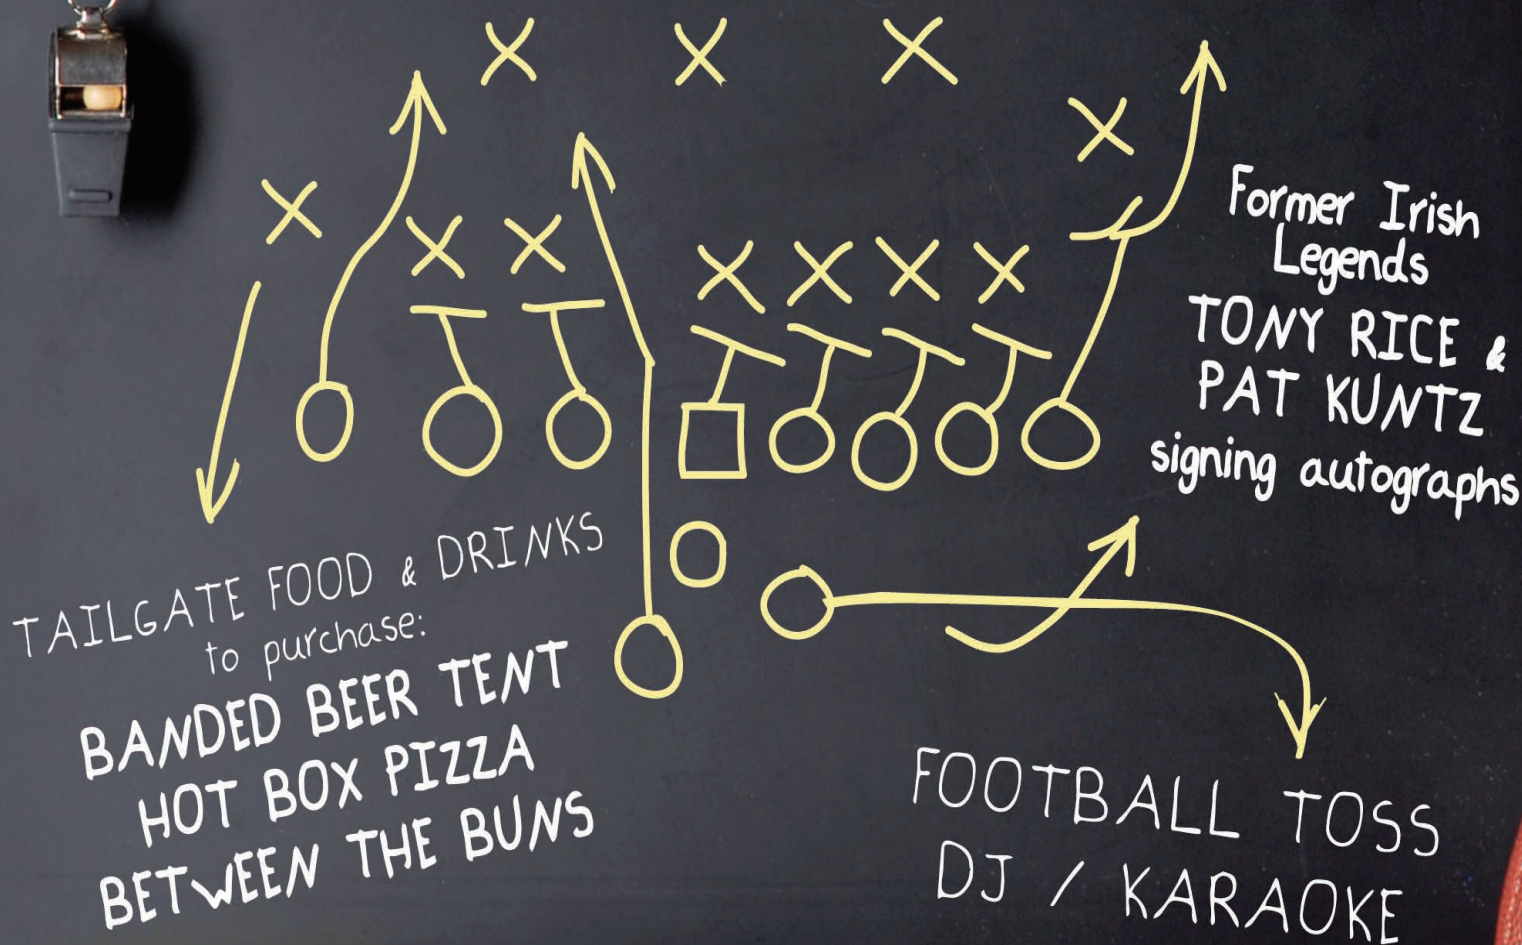 Former Irish
Legends
TONY RICE &
PAT KUNTZ
signing autographs
TAILGATE FOOD & DRINKS
to purchase:
BANDED BEER TENT
HOT BOX PIZZA
BETWEEN THE BUNS
FOOTBALL TOSS
DJ / KARAOKE